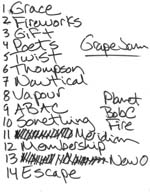 1 Grace
2 Fireworks
3 Gift
4 Poets
GrapeJam
5 Twist
6 Thompson
7 Nautical
8 Vapour
9 ABAC
Planet
10 Something
BobC
Fire
11 Meridian
12 Membership
13 New O
14 Escape